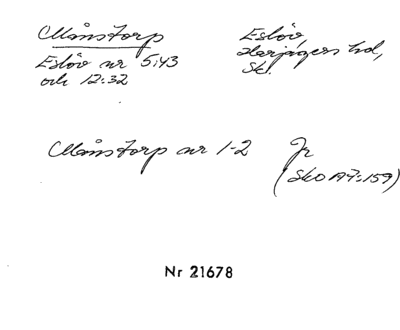 Månstorp
Eslöv nr 5:43
och 12:32
Eslöv,
Harjagers hd,
Sk.
Månstorp nr 1-2 Jr
(Sko A7:159)
Nr 21678